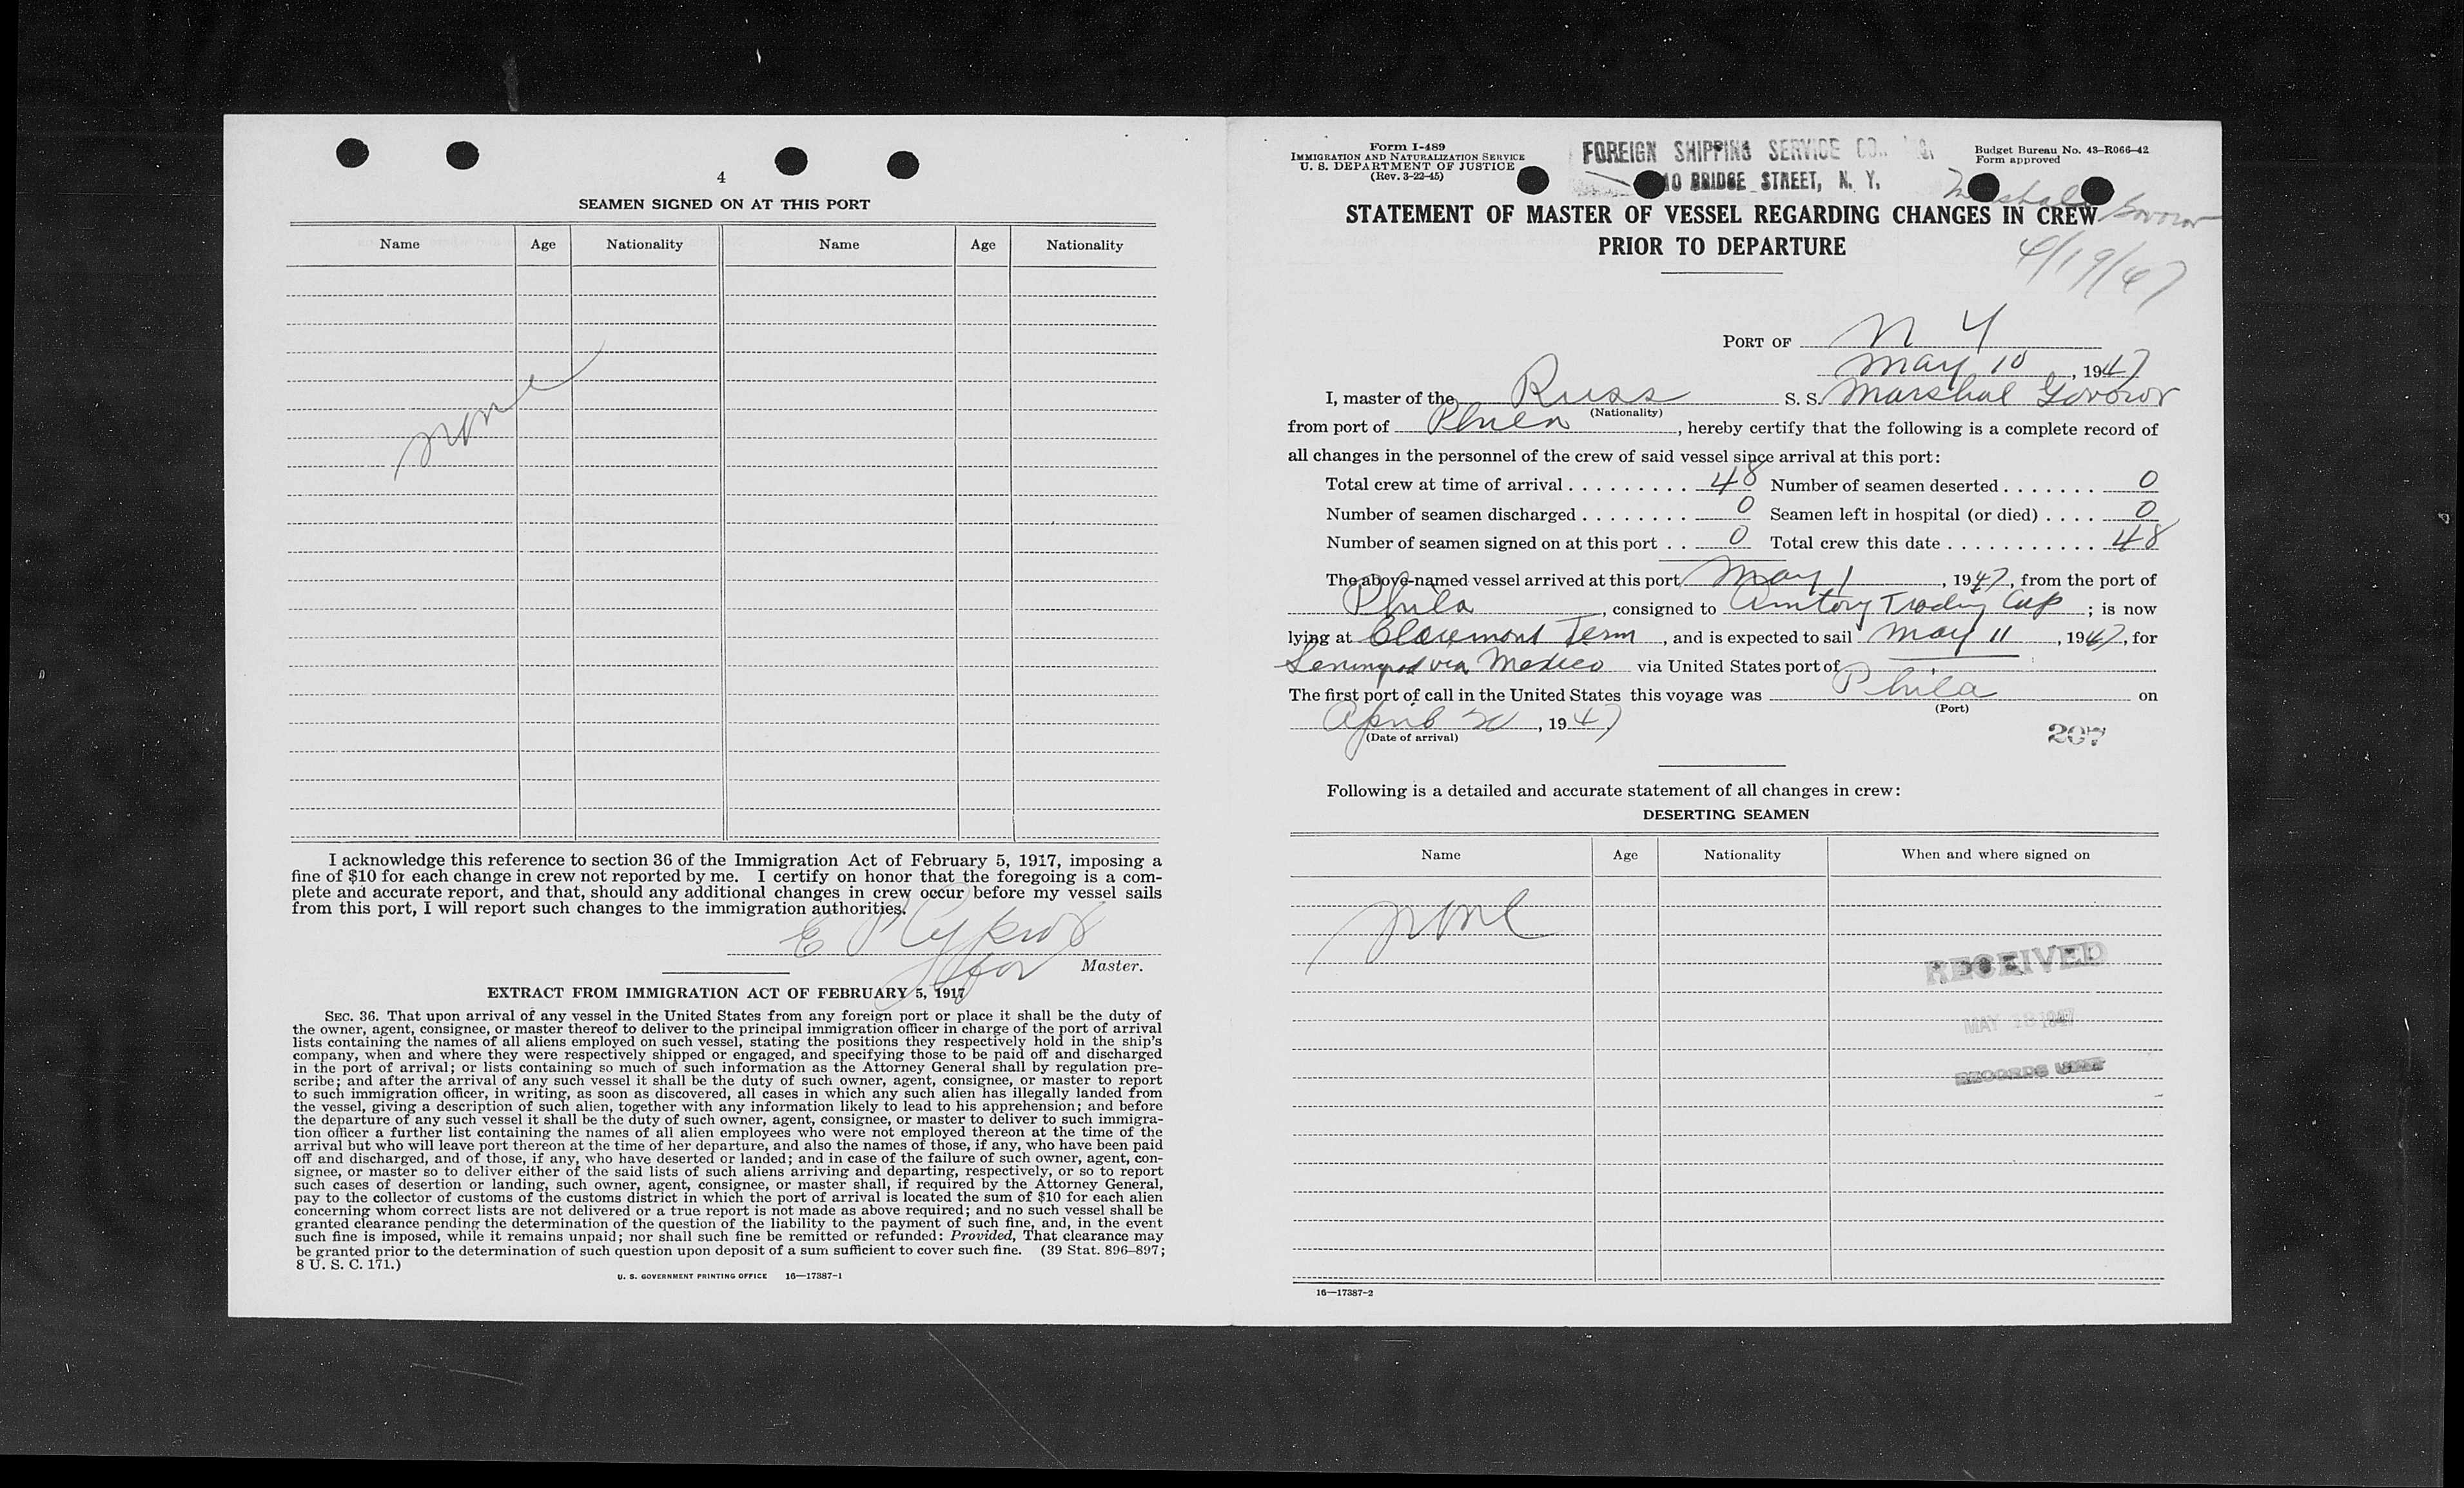 4
SEAMEN SIGNED ON AT THIS PORT
Name Age Nationality Name Age Nationality
none
I acknowledge this reference to section 36 of the Immigration Act of February 5, 1917, imposing a
fine of $10 for each change in crew not reported by me. I certify on honor that the foregoing is a com-
plete and accurate report, and that, should any additional changes in crew occur before my vessel sails
from this port, I will report such changes to the immigration authorities.
E P
for Master.
EXTRACT FROM IMMIGRATION ACT OF FEBRUARY 5, 1917
SEC. 36. That upon arrival of any vessel in the United States from any foreign port or place it shall be the duty of
the owner, agent, consignee, or master thereof to deliver to the principal immigration officer in charge of the port of arrival
lists containing the names of all aliens employed on such vessel, stating the positions they respectively hold in the ship's
company, when and where they were respectively shipped or engaged, and specifying those to be paid off and discharged
in the port of arrival; or lists containing so much of such information as the Attorney General shall by regulation pre-
scribe; and after the arrival of any such vessel it shall be the duty of such owner, agent, consignee, or master to report
to such immigration officer, in writing, as soon as discovered, all cases in which any such alien has illegally landed from
the vessel, giving a description of such alien, together with any information likely to lead to his apprehension; and before
the departure of any such vessel it shall be the duty of such owner, agent, consignee, or master to deliver to such immigra-
tion officer a further list containing the names of all alien employees who were not employed thereon at the time of the
arrival but who will leave port thereon at the time of her departure, and also the names of those, if any, who have been paid
off and discharged, and of those, if any, who have deserted or landed; and in case of the failure of such owner, agent, con-
signee, or master so to deliver either of the said lists of such aliens arriving and departing, respectively, or so to report
such cases of desertion or landing, such owner, agent, consignee, or master shall, if required by the Attorney General,
pay to the collector of customs of the customs district in which the port of arrival is located the sum of $10 for each alien
concerning whom correct lists are not delivered or a true report is not made as above required; and no such vessel shall be
granted clearance pending the determination of the question of the liability to the payment of such fine, and, in the event
such fine is imposed, while it remains unpaid; nor shall such fine be remitted or refunded: Provided, That clearance may
be granted prior to the determination of such question upon deposit of a sum sufficient to cover such fine. (39 Stat. 896-897;
8 U. S. C. 171.)
U. S. GOVERNMENT PRINTING OFFICE 16—17387-1
Form I-489
IMMIGRATION AND NATURALIZATION SERVICE
U. S. DEPARTMENT OF JUSTICE
(Rev. 3-22-45)
FOREIGN SHIPPING SERVICE CO.
10 BRIDGE STREET, N. Y.
Budget Bureau No. 43-R066-42
Form approved
Marshal Govorov
4/19/47
STATEMENT OF MASTER OF VESSEL REGARDING CHANGES IN CREW
PRIOR TO DEPARTURE
PORT OF N Y
May 10, 1947
I, master of the Russ S. S. Marshal Govorov
(Nationality)
from port of Phila, hereby certify that the following is a complete record of
all changes in the personnel of the crew of said vessel since arrival at this port:
Total crew at time of arrival . . . . . . . . . . 48 Number of seamen deserted . . . . . . . 0
Number of seamen discharged . . . . . . . . 0 Seamen left in hospital (or died) . . . . 0
Number of seamen signed on at this port . . 0 Total crew this date . . . . . . . . . . . . 48
The above-named vessel arrived at this port May 1, 1947, from the port of
Phila, consigned to Amtorg Trading Corp; is now
lying at Claremont Term, and is expected to sail May 11, 1947, for
Leningrad via Mexico via United States port of
The first port of call in the United States this voyage was Phila on
(Port)
April 20, 1947
(Date of arrival)
207
Following is a detailed and accurate statement of all changes in crew:
DESERTING SEAMEN
Name Age Nationality When and where signed on
none
RECEIVED
MAY 1947
RECORDS UNIT
16—17387-2